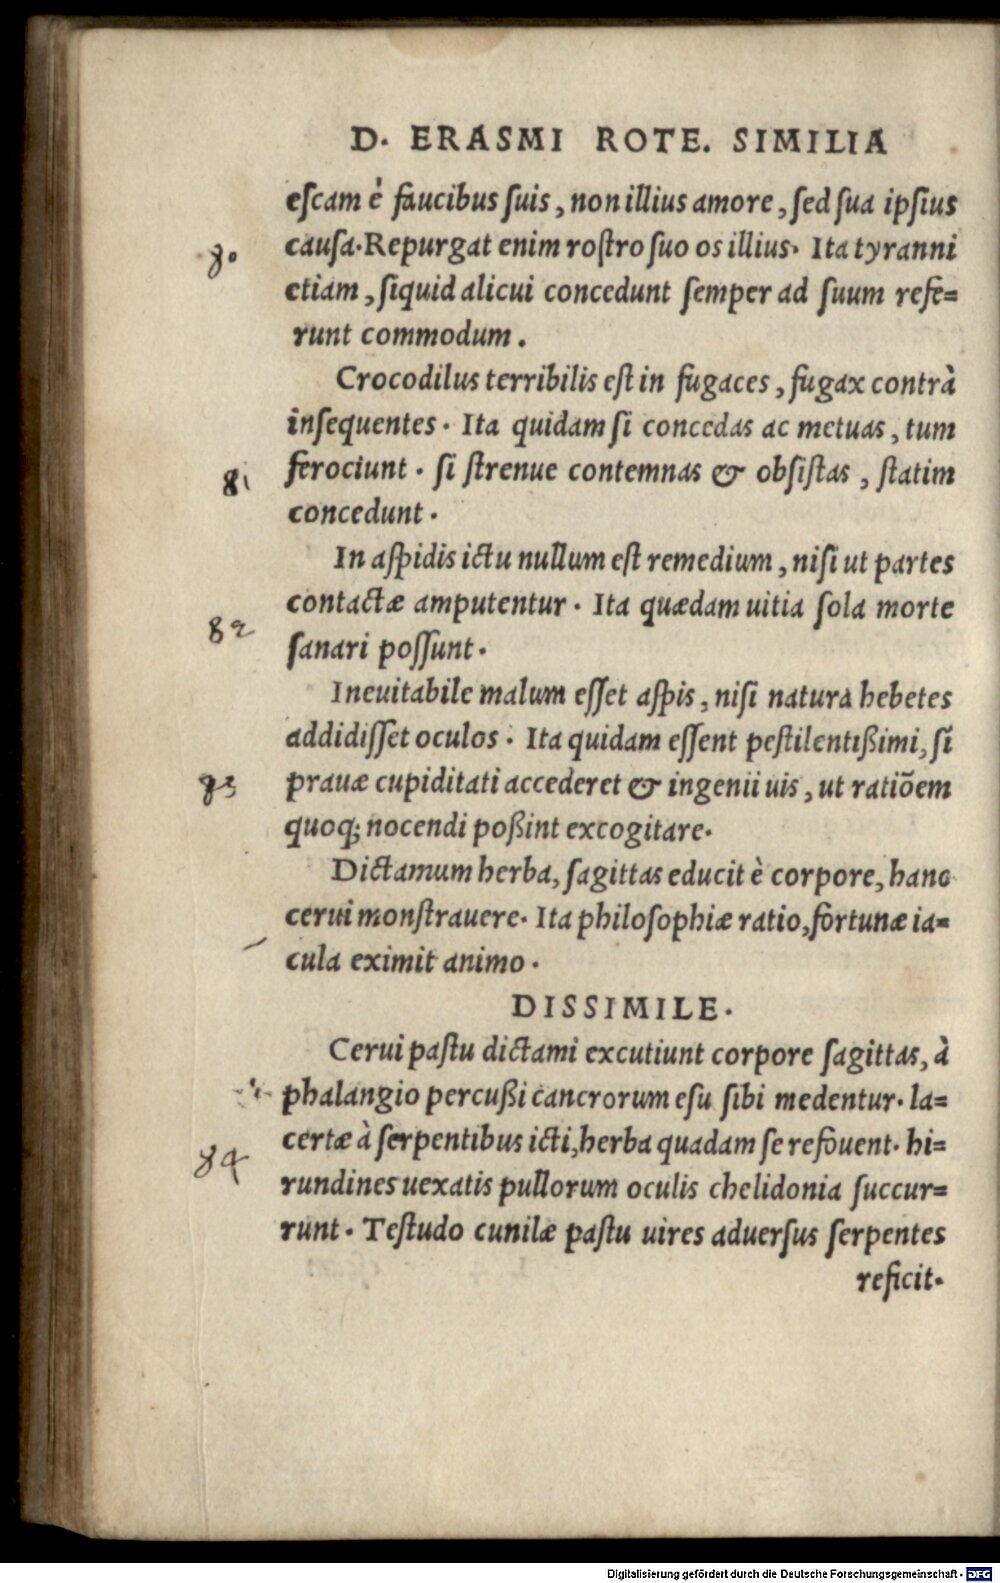 D. ERASMI ROTE. SIMILIA
eſcam è faucibus ſuis, non illius amore, ſed ſua ipſius
80
cauſa. Repurgat enim roſtro ſuo os illius. Ita tyranni
etiam, ſiquid alicui concedunt ſemper ad ſuum refe=
runt commodum.
Crocodilus terribilis eſt in fugaces, fugax contrà
inſequentes. Ita quidam ſi concedas ac metuas, tum
81
ferociunt. ſi ſtrenue contemnas & obſiſtas, ſtatim
concedunt.
In aſpidis ictu nullum eſt remedium, niſi ut partes
contactæ amputentur. Ita quædam uitia ſola morte
82
ſanari poſſunt.
Ineuitabile malum eſſet aſpis, niſi natura hebetes
addidiſſet oculos. Ita quidam eſſent peſtilentißimi, ſi
83
prauæ cupiditati accederet & ingenii uis, ut ratiõem
quoq; nocendi poßint excogitare.
Dictamum herba, ſagittas educit è corpore, hanc
cerui monſtrauere. Ita philoſophiæ ratio, fortunæ ia=
cula eximit animo.
DISSIMILE.
Cerui paſtu dictami excutiunt corpore ſagittas, à
phalangio percußi cancrorum eſu ſibi medentur. la=
certæ à ſerpentibus icti, herba quadam ſe refouent. hi=
84
rundines uexatis pullorum oculis chelidonia ſuccur=
runt. Teſtudo cunilæ paſtu uires aduerſus ſerpentes
reficit.
Digitalisierung gefördert durch die Deutsche Forschungsgemeinschaft - DFG